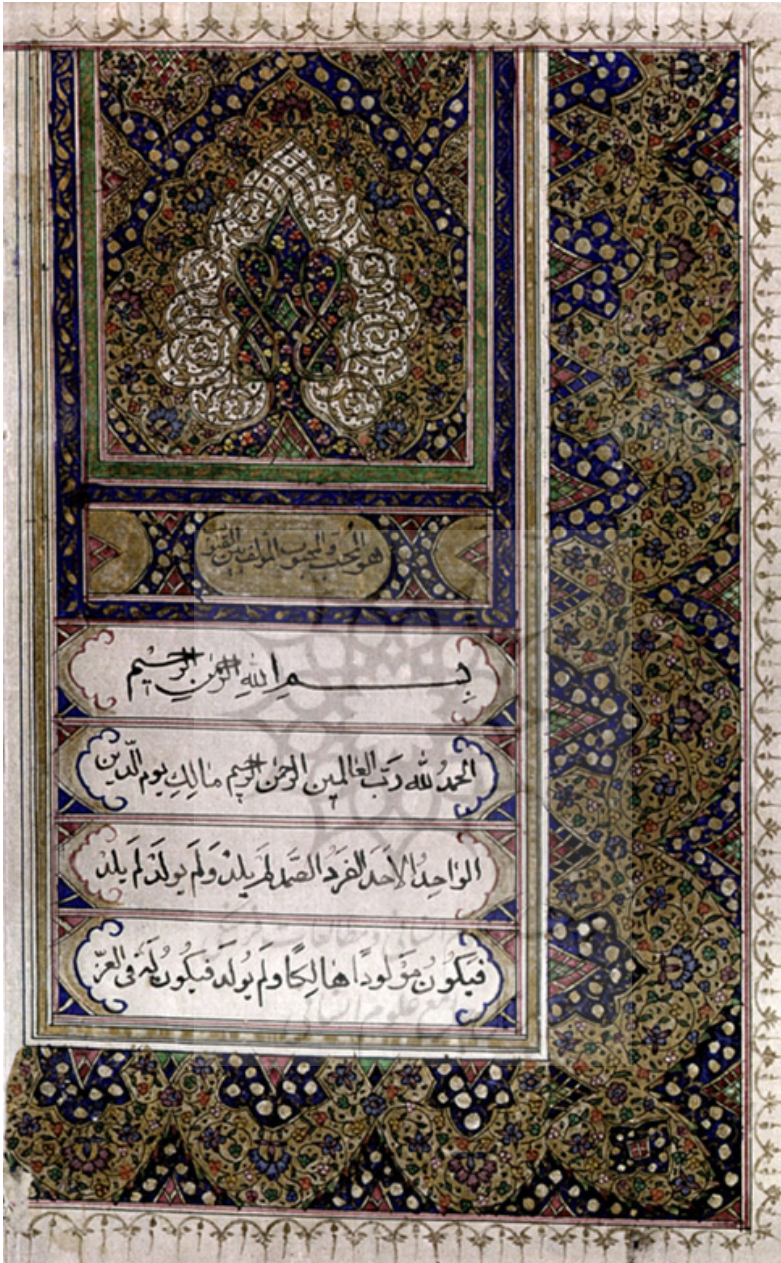 هو المحب والمحبوب المؤلف بين القلوب
بِسْمِ اللهِ الرَّحْمٰنِ الرَّحِيمِ
الحمدُ لله رَبِّ العالمين الرحمن الرحيم مالكِ يوم الدّين
الواحِدُ الاَحَدَ الفَرْد الصَّمَد لَمْ يلِدْ وَلَمْ يولَدْ لَمْ يلِدْ
فيَكُونُ مَوْلودًا هٰالِكًا وَلَم يُولَد فَيكون لَهُ فى العزّ